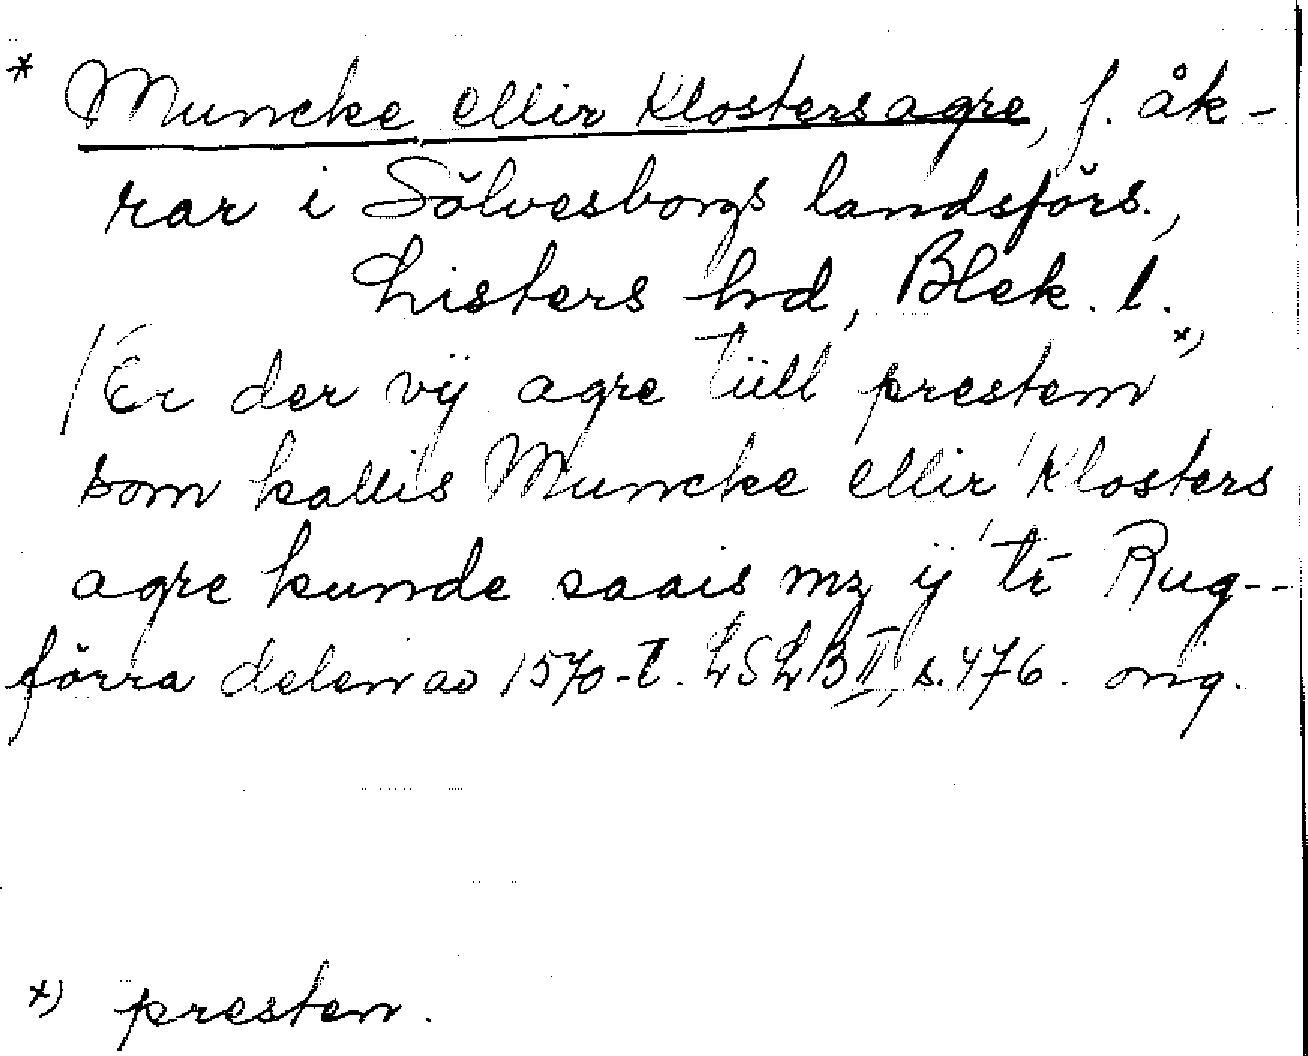 * Muncke ellir Klostersagre, f. åk-
rar i Sölvesborgs landsförs.,
Listers hd, Blek. l.
/Er der vij agre tiill prestem x)
som kallis Muncke ellir Klosters
agre kunde saais mz ij tr̄ Rug--
förra delen av 1570-t. LSLB II, s. 476. orig.
x) presten.